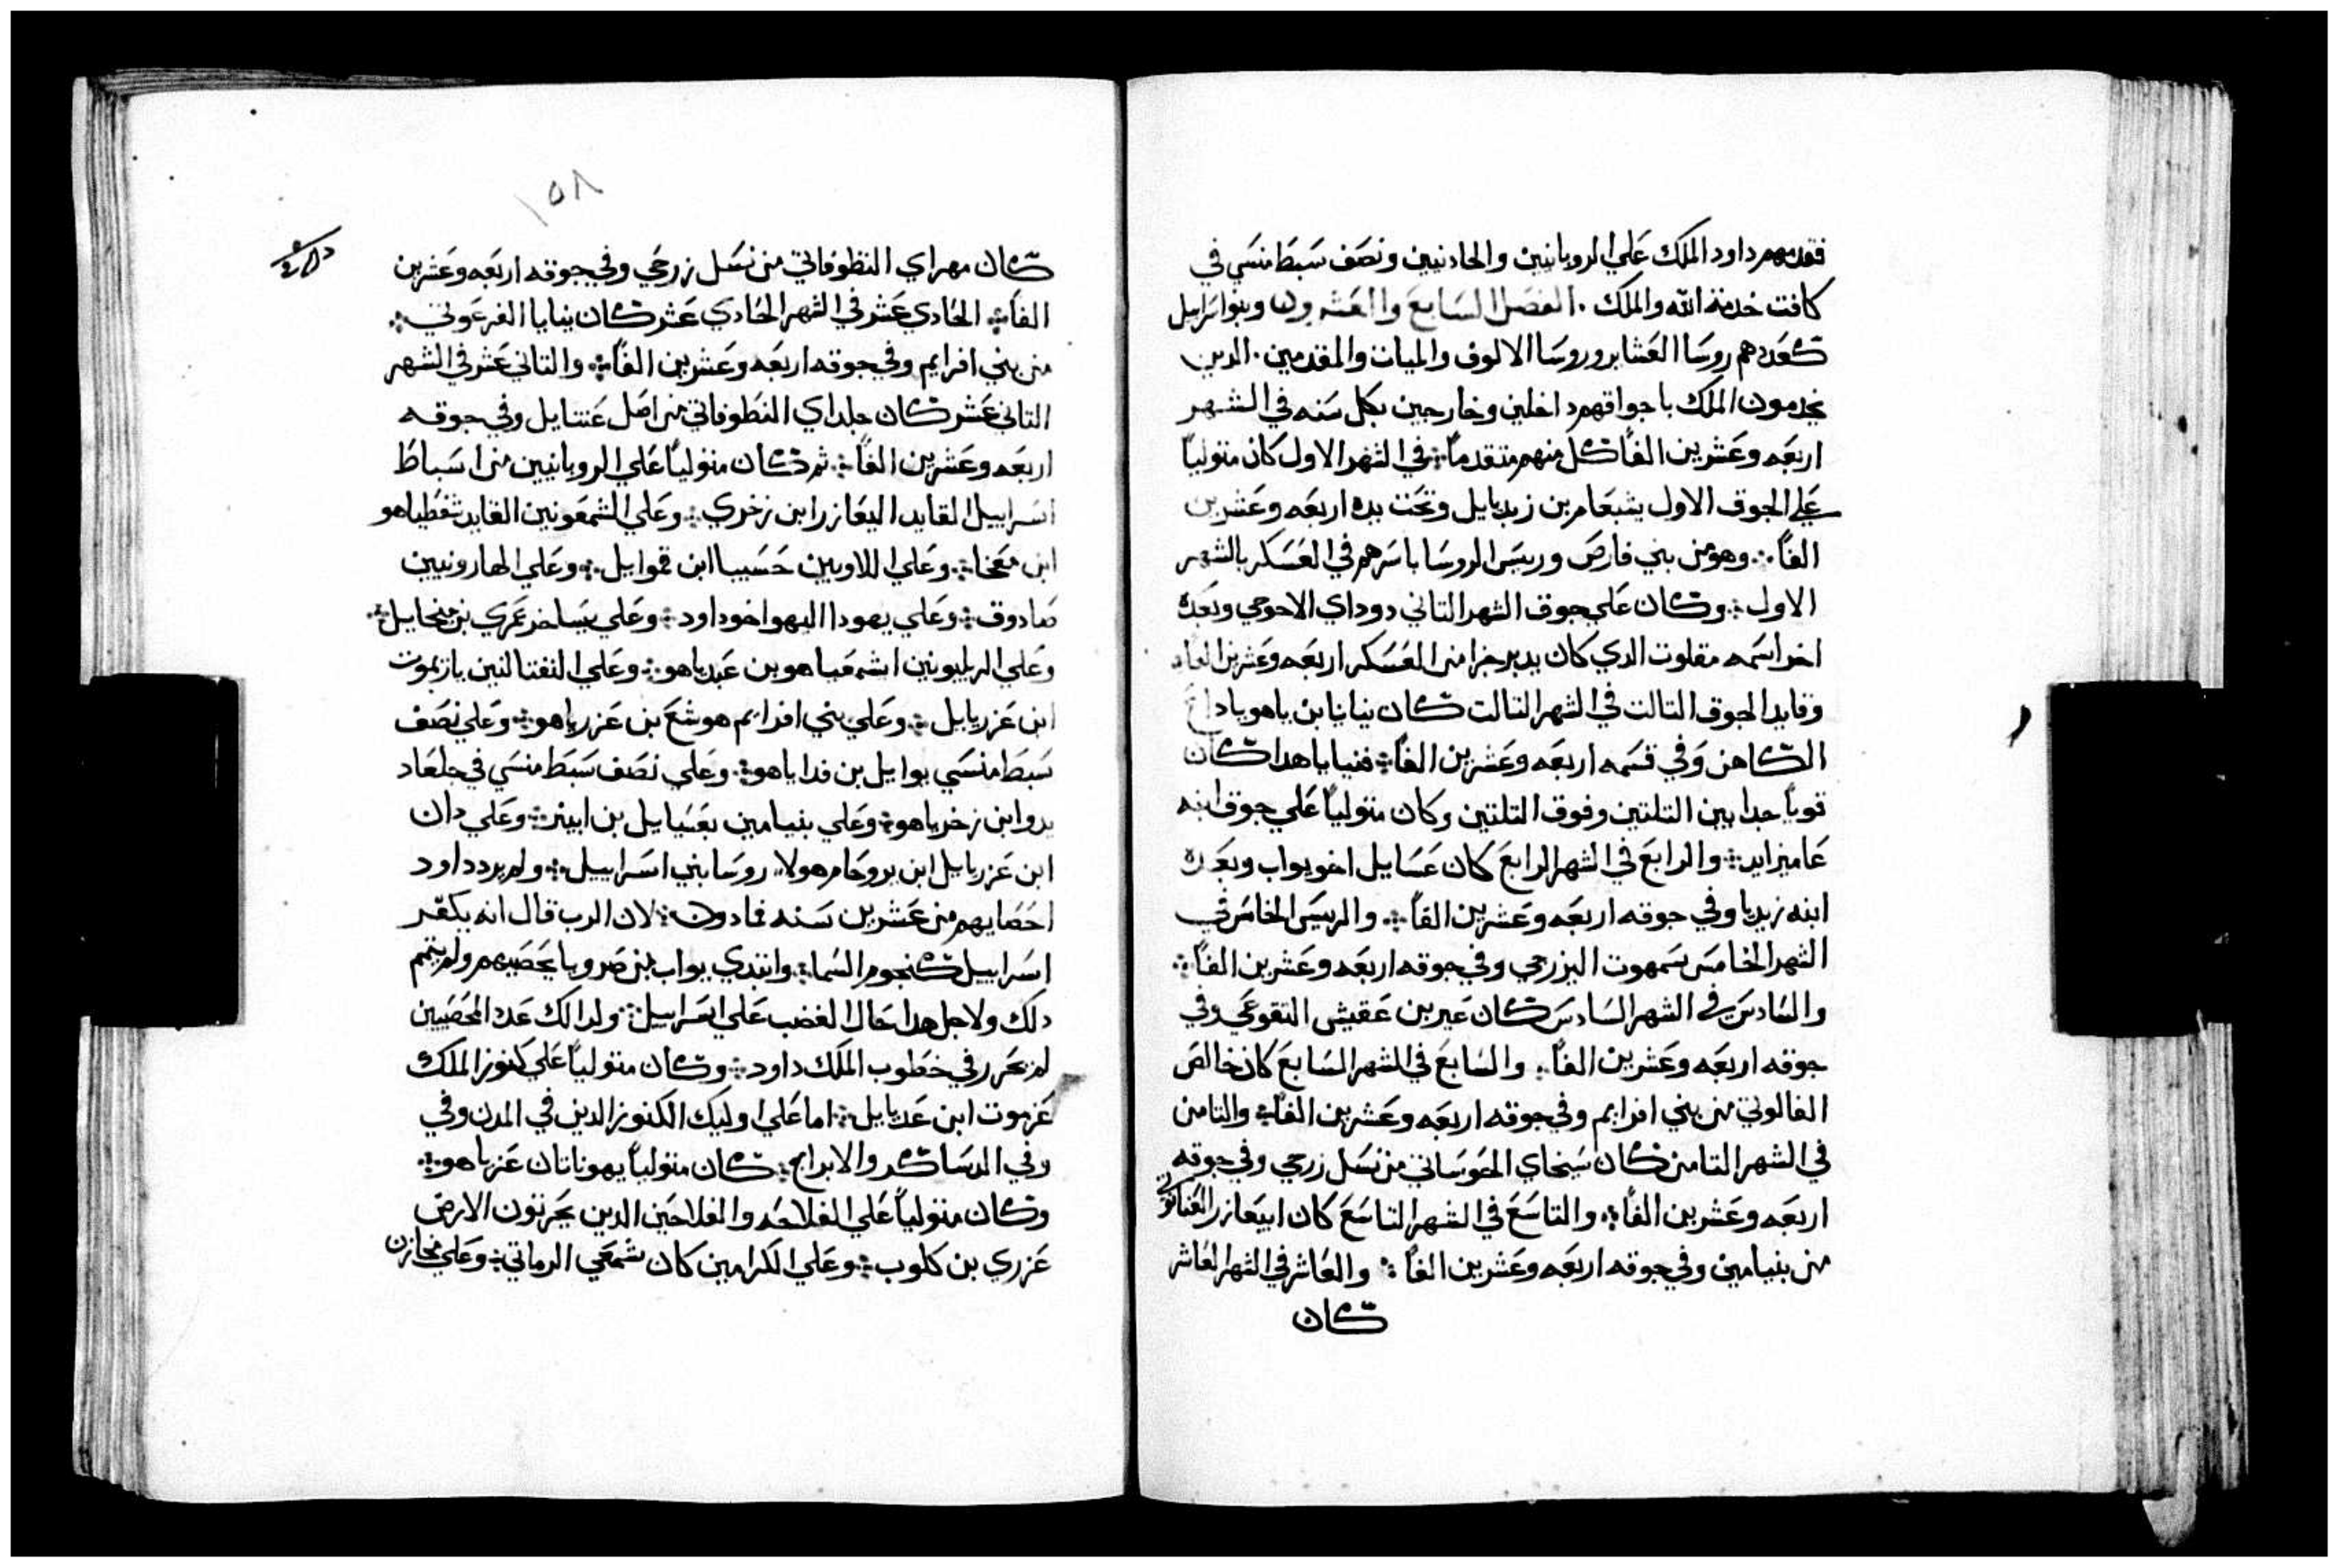 فقدمهم داود الملك علي الروبانيين والجادنيين ونصف سبط منسي في
كافت خدمة الله والملك . الفصل السابع والعشرون وبنواسراييل
كعددهم روسا العشاير وروسا الالوف والميات والمقدمين . الدين
يخدمون الملك باجواقهم داخلين وخارجين بكل سنه في الشهر
اربعه وعشرين الفاً كل منهم متقدماً في الشهر الاول كان متولياً
علي الجوق الاول يشبعام بن زبديايل وتحت يده اربعه وعشرين
الفاً وهو من بني فارص وريس الروسا باسرهم في العسكر بالشهر
الاول وكان علي جوق الشهر التاني دوداي الاحوحي وبعده
اخر اسمه مقلوت الدي كان يدبر جزا من العسكر اربعه وعشرين الفاً
وقايد الجوق التالت في الشهر التالت كان بنايا بن ياهوياداع
الكاهن وفي قسمه اربعه وعشرين الفاً فبنيايا هدا كان
قوياً جدا بين التلتين وفوق التلتين وكان متولياً علي جوق ابنه
عاميزابد والرابع في الشهر الرابع كان عسايل اخو يواب وبعده
ابنه زبديا وفي جوقه اربعه وعشرين الفاً والريس الخامس في
الشهر الخامس سمهوت اليزرحي وفي جوقه اربعه وعشرين الفاً
والسادس في الشهر السادس كان عير بن عقيش التقوعي وفي
جوقه اربعه وعشرين الفاً والسابع في الشهر السابع كان خالص
الفالوني من بني افرايم وفي جوقه اربعه وعشرين الفاً والتامن
في الشهر التامن كان سبخاي الحوساتي من نسل زرحي وفي جوقه
اربعه وعشرين الفاً والتاسع في الشهر التاسع كان ابيعازر العناتوتي
من بنيامين وفي جوقه اربعه وعشرين الفاً والعاشر في الشهر العاشر
كان
١٥٨
كان مهراي النطوفاتي من نسل زرحي وفي جوقه اربعه وعشرين
الفاً الحادي عشر في الشهر الحادي عشر كان بنايا الفرعوني
من بني افرايم وفي جوقه اربعه وعشرين الفاً والتاني عشر في الشهر
التاني عشر كان حلداي النطوفاتي من اصل عتنايل وفي جوقه
اربعه وعشرين الفاً ثم كان متولياً علي الروبانيين من اسباط
اسراييل القايد اليعازر ابن زخري وعلي الشمعونيين القايد شفطياهو
ابن معخا وعلي اللاويين حسبيا ابن قموايل وعلي الهارونيين
صادوق وعلي يهودا اليهو اخو داود وعلي يساخر عمري بن ميخايل
وعلي الزبلونيين اشمعياهو بن عبدياهو وعلي النفتالنين يازيموت
ابن عزريايل وعلي بني افرايم هوشع بن عزرياهو وعلي نصف
سبط منسي يوايل بن فداياهو وعلي نصف سبط منسي في جلعاد
يدو ابن زخرياهو وعلي بنيامين يعسيايل بن ابينر وعلي دان
ابن عزريايل ابن يروحام هولاء روسا بني اسراييل ولم يردد داود
احصايهم من عشرين سنه فمادون لان الرب قال انه يكتر
اسراييل كنجوم السما وابتدي يواب بن صرويا يحصيهم ولم يتمم
دلك ولاجل هدا حال الغضب علي اسراييل ولدالك عدد المحصيين
لم يحرر في خطوب الملك داود وكان متولياً علي كنوز الملك
عزموت ابن عديايل اما علي اوليك الكنوز الدين في المدن وفي
وفي الدساكر والابراج كان متولياً يهوناتان عزياهو
وكان متولياً علي الفلاحه والفلاحين الدين يحرتون الارض
عزري بن كلوب وعلي الكرامين كان شمعي الرماتي وعلي مخازن